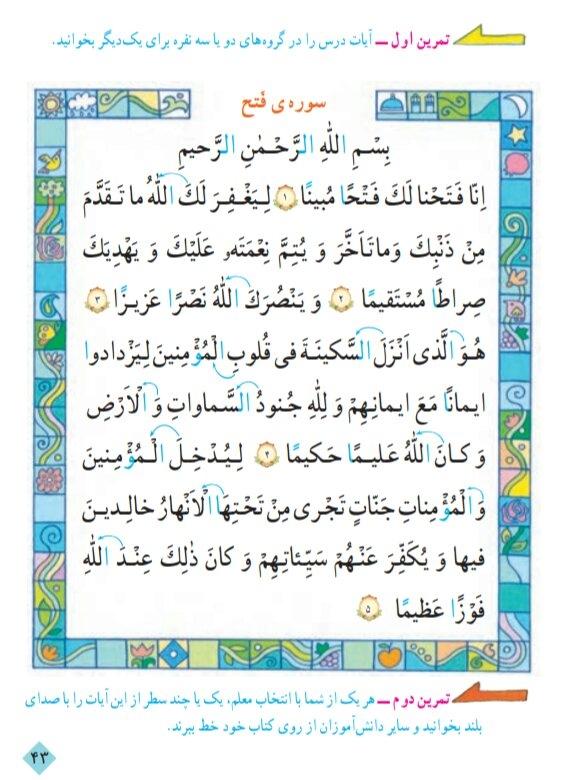 تمرین اول ــ آیات درس را در گروه‌های دو یا سه نفره برای یک‌دیگر بخوانید.
سوره‌ی فَتح
بِسْمِ اللّٰهِ الرَّحْمٰنِ الرَّحیمِ
اِنّا فَتَحْنا لَكَ فَتْحًا مُبینًا ۱ لِیَغْفِرَ لَكَ اللّٰهُ ما تَقَدَّمَ
مِنْ ذَنْبِكَ وَ ما تَاَخَّرَ وَ یُتِمَّ نِعْمَتَهٗ عَلَیْكَ وَ یَهْدِیَكَ
صِراطًا مُسْتَقیمًا ۲ وَ یَنْصُرَكَ اللّٰهُ نَصْرًا عَزیزًا ۳
هُوَ الَّذی اَنْزَلَ السَّكینَةَ فی قُلوبِ الْمُؤْمِنینَ لِیَزْدادوا
ایمانًا مَعَ ایمانِهِمْ وَ لِلّٰهِ جُنودُ السَّماواتِ وَ الْاَرْضِ
وَ كانَ اللّٰهُ عَلیمًا حَكیمًا ۴ لِیُدْخِلَ الْمُؤْمِنینَ
وَ الْمُؤْمِناتِ جَنّاتٍ تَجْری مِنْ تَحْتِهَا الْاَنْهارُ خالِدینَ
فیها وَ یُكَفِّرَ عَنْهُمْ سَیِّئاتِهِمْ وَ كانَ ذٰلِكَ عِنْدَ اللّٰهِ
فَوْزًا عَظیمًا ۵
تمرین دوم ــ هر یک از شما با انتخاب معلم، یک یا چند سطر از این آیات را با صدای
بلند بخوانید و سایر دانش‌آموزان از روی کتاب خود خط ببرند.
۴۳